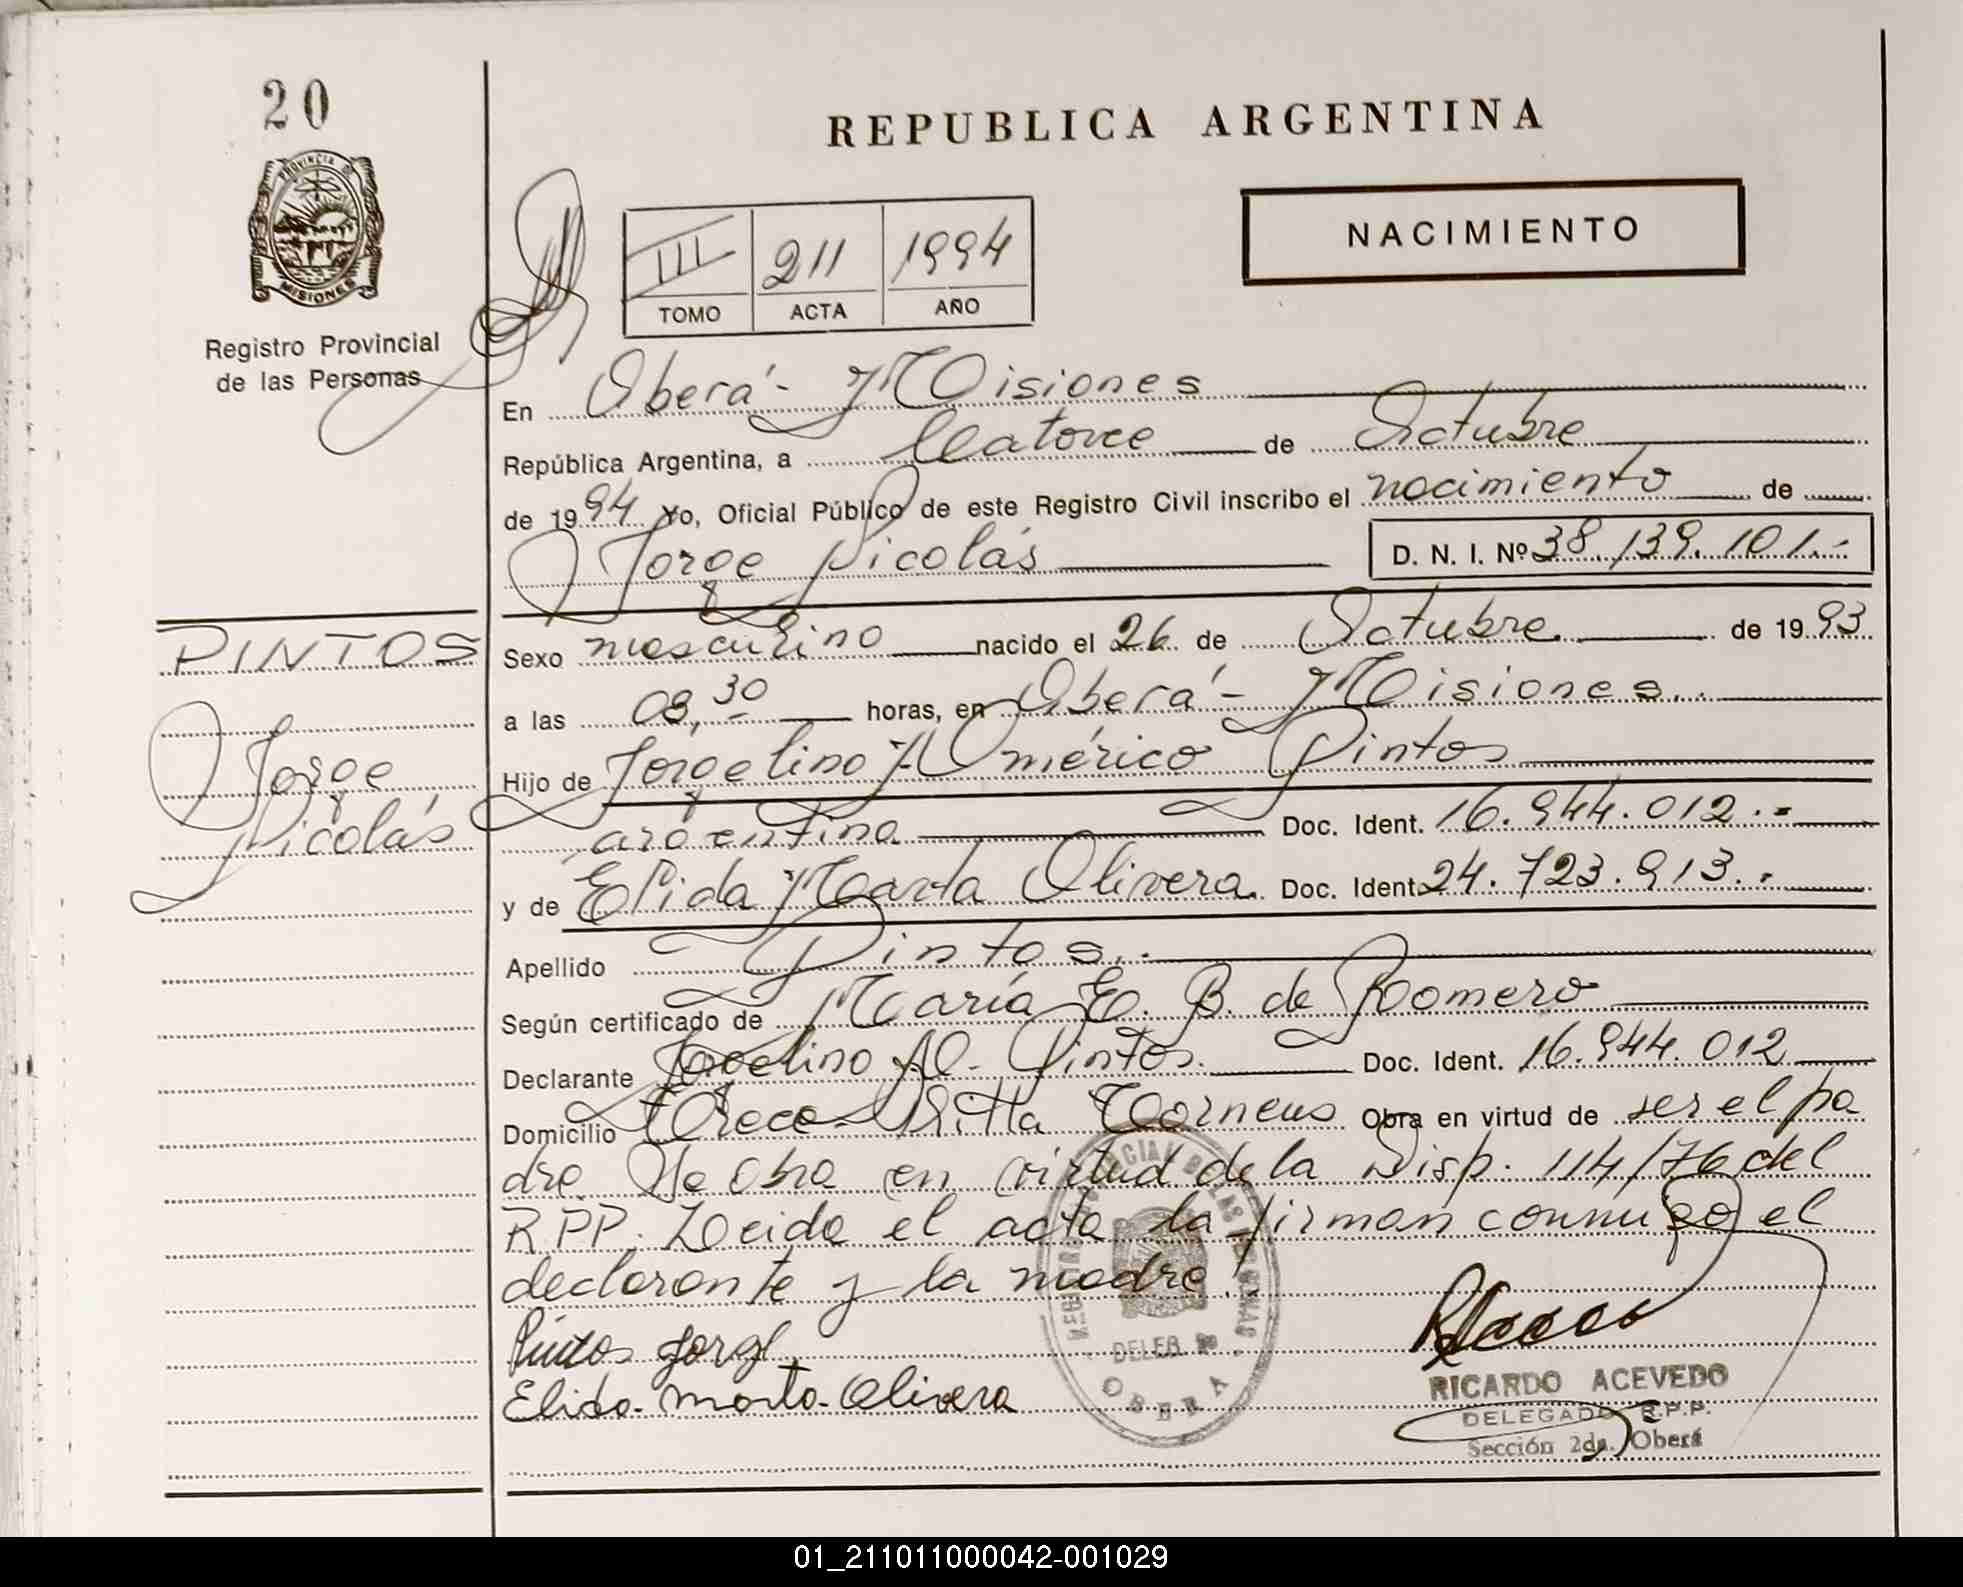 20
REPUBLICA ARGENTINA
PROVINCIA DE
MISIONES
Registro Provincial
de las Personas
III 211 1994
TOMO ACTA AÑO
NACIMIENTO
En Oberá - Misiones
República Argentina, a Catorce de Octubre
de 1994 Yo, Oficial Público de este Registro Civil inscribo el nacimiento de
Jorge Nicolás D. N. I. Nº 38.139.101.-
PINTOS
Jorge
Nicolás
Sexo masculino nacido el 26 de Octubre de 1993
a las 08,30 horas, en Oberá - Misiones.
Hijo de Jorgelino Américo Pintos
argentina Doc. Ident. 16.944.012.-
y de Elida Marta Olivera. Doc. Ident. 24.723.913.-
Apellido Pintos.
Según certificado de María E. B. de Romero
Declarante Jorgelino A. Pintos. Doc. Ident. 16.944.012
Domicilio Obra en virtud de ser el pa
dre. Se obra en virtud de la Disp. 114/76 del
R.P.P. Leida el acta la firman conmigo el
declarante y la madre.
Pintos Jorge
Elida Marta Olivera
DELEG.
OBERA
RICARDO ACEVEDO
DELEGADO R.P.P.
Sección 2da. Oberá
01_211011000042-001029